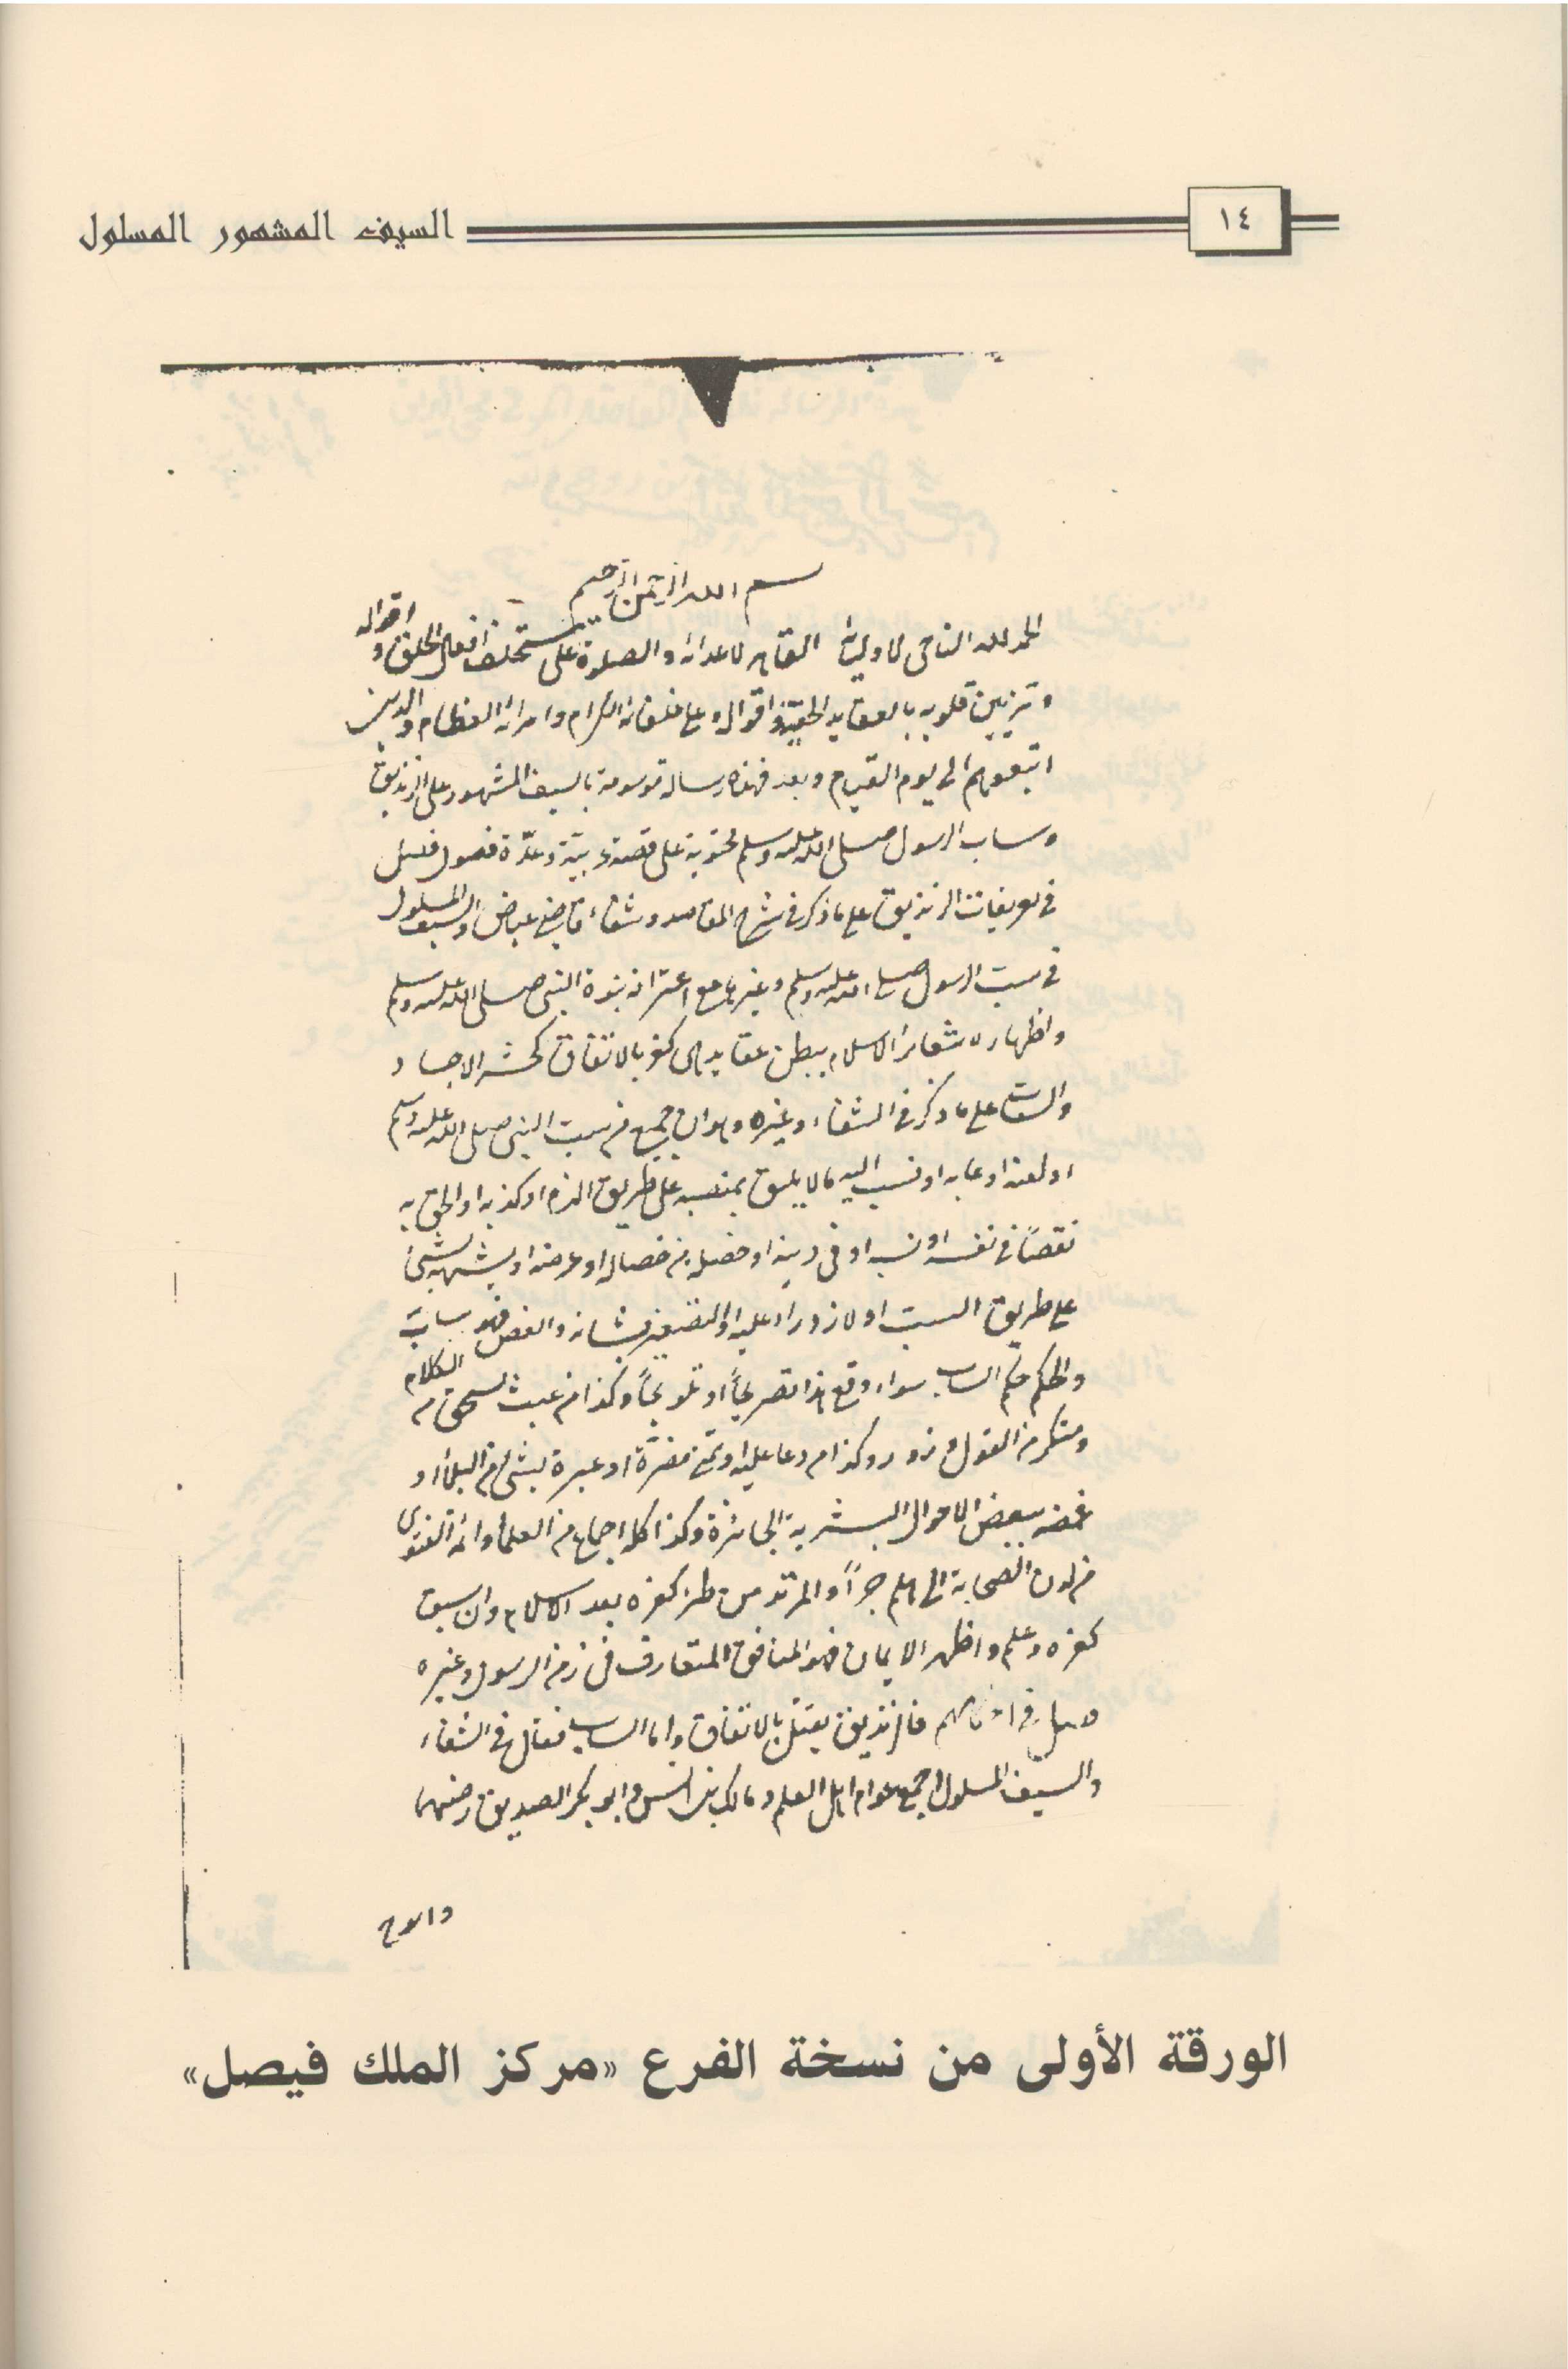 السيف المشهور المسلول
١٤
بسم الله الرحمن الرحيم
الحمد لله الناصر لاوليائه القاهر لاعدائه والصلوة على افعال الخلق واقواله
وتزيين قلوبه بالعقايد الحقية واقواله وعلى خلفائه الكرام وامرائه العظام والذين
اتبعوهم الى يوم القيام وبعد فهذه رسالة موسومة بالسيف المشهور على الزنديق
وساب الرسول صلى الله عليه وسلم محتوية على قصة وعدة فصول فصل
في تعريفات الزنديق على ما ذكر في شرح المقاصد وشفاء قاضي عياض والسيف المسلول
في سب الرسول صلى الله عليه وسلم وغيرها مع اعترافه بنبوة النبي صلى الله عليه وسلم
واظهاره شعائر الاسلام يبطن عقايد هي كفر بالاتفاق كحشر الاجساد
والساب على ما ذكر في الشفاء وغيره وهو ان جميع من سب النبي صلى الله عليه وسلم
او لعنه او عابه او نسب اليه ما لا يليق بمنصبه على طريق الذم او كذبه او الحق به
نقصاً في نفسه او نسبه او في دينه او خصلة من خصاله او عرضه او يشبهه بشئ
على طريق السب او لازدراء عليه او التصغير بشانه والغض فهو ساب
والحكم حكم الساب سواء وقع هذا تصريحاً او تلويحاً وكذا من عبث من الكلام
ومنكر من القول وزور وكذا من دعا عليه او تمنى مضرة او عيره بشئ من البلاء او
غمضه ببعض الاحوال البشرية الجائزة وكذا كله اجماع من العلماء وائمة الفتوى
من لدن الصحابة الى هلم جراً والمرتد من طرأ كفره بعد الاسلام وان سبق
كفره وعلم واظهر الايمان فهو المنافق المتعارف في زمن الرسول وغيره
فصل في احكامهم فالزنديق يقتل بالاتفاق واما الساب فقال في الشفاء
والسيف المسلول اجمع عوام اهل العلم ومالك بن انس وابو بكر الصديق رضي عنهما
الورقة الأولى من نسخة الفرع «مركز الملك فيصل»